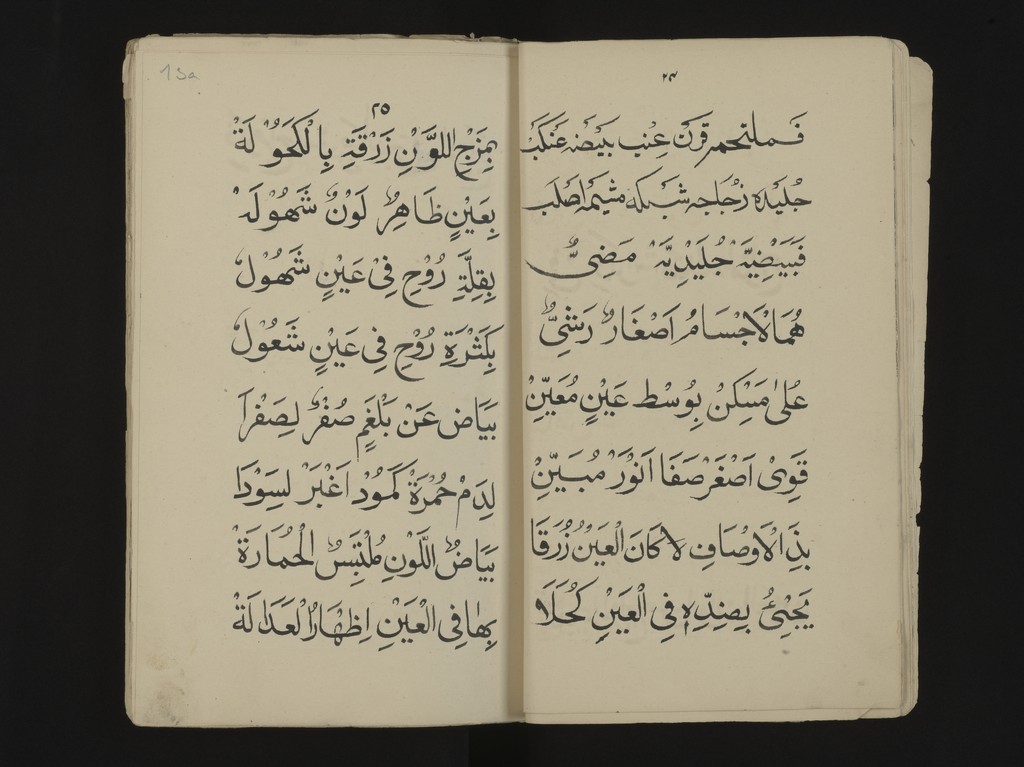 ٢٤
فَمُلتحمه قرَنْ عِنَب بَيْضَه عَنْكَبْ
جُلَيْدَه زُجَاجه شَبَكَه مَشِيمَه اَصْلَب
فَبَيَضِيَّهْ جُلَيَدِيَّهْ مَضِىٌّ
هُمَا لْاَجْسَامُ اَصْغَارٌ رَشِىٌّ
عُلىٰ مَسْكِنْ بِوُسْط عَيْنٍ مُعَيَّنْ
قَوِىْ اَصْغَرْ صَفَا اَنْوَرْ مُبَيَّنْ
بِذَ الْاَوْصَافِ لاَ كَانَ الْعَيْنُ زُرَقَا
يَجْئِىُٔ بِضِدِّهِ فِى الْعَيْنِ كَحْلَاَ
13a
٢٥
بِمَزْجِ اللوَّنِ زَرْقَةِ بِالْكَحَوُلَةْ
بِعَيْنٍ ظَاهِرٌ لَوْنٌ شَهُوْلَهْ
بِقِلَّةِ رُوْحِ فِىْ عَيْنٍ شَهُوْلٌ
بِكَثْرَةِ رُوْحِ فِى عَيْنٍ شَعُوْلٌ
بَيَاض عَنْ بَلْغَمٍ صُفْرٌ لِصَفْرَا
لِدَمْ حُمْرَةْ كَمُوْد اَغْبَرْ لِسَوْدَا
بَيَاضٌ اللَّوْنِ مُلْتَبِسٌ الْحُمَارَةْ
بِهٰا فِى الْعَيْنِ اِظْهَارُ الْعَدَالَةْ